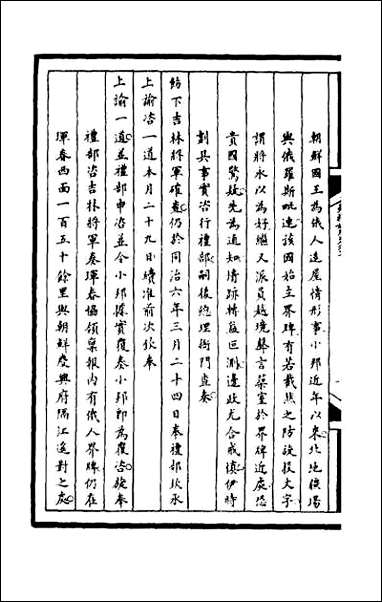 朝鮮國王為俄人造屋情形事小邦近年以來北地俄陽
與俄羅斯毗連該國始立界碑有若截然之防設投文字
謂將永以為好繼又派員越境聲言築室於界碑近處恐
貴國驚疑先為道知情跡情叵測邊政尤合戒慎伊時
劃具事實咨行禮部嗣後總理衙門查奏
飭下吉林將軍確查仍於同治六年三月二十四日奉禮部欽承
上諭咨一道本月二十九日續准前次欽奉
上諭一道並禮部申咨並令小邦探實覆奏小邦郎為覆咨旋奉
禮部咨吉林將軍奏琿春協領稟報內有俄人界牌仍在
琿春西面一百五十餘里與朝鮮慶興府隔江遙對之處